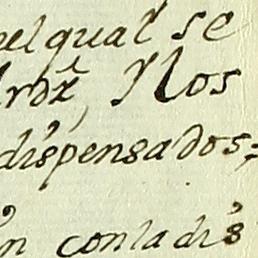 el qual se
Nos
dispensados,=
con la dis